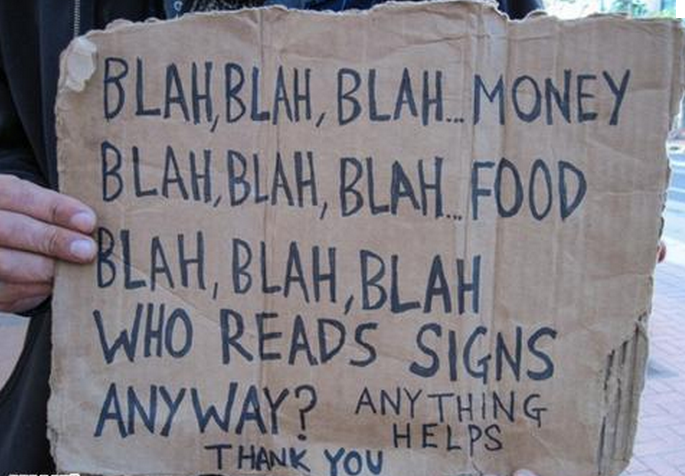 BLAH, BLAH, BLAH... MONEY
BLAH, BLAH, BLAH... FOOD
BLAH, BLAH, BLAH
WHO READS SIGNS
ANYWAY? ANYTHING
HELPS
THANK YOU